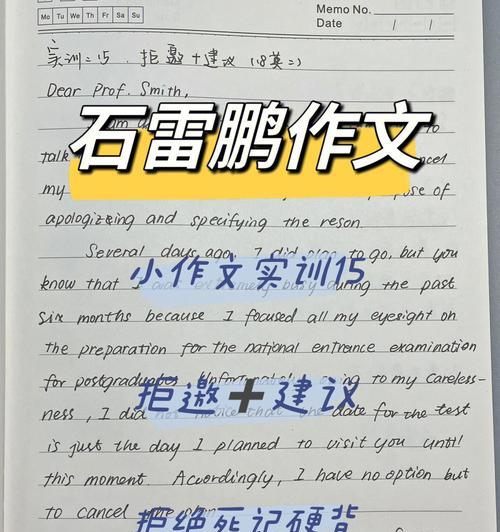 Memo No.
Mo Tu We Th Fr Sa Su
Date / /
实训=15. 拒邀+建议(18英二)
Dear Prof. Smith,
am
to
石雷鹏作文
talk
cel
my
pose of
apologizeing and specifying the reson.
Several days ago, I did plan to go, but you
小作文实训15
know that I busy during the past
six months because I focused all my eyesight on
the preparation for the national entrance examination
for postgraduates. to my careless-
拒邀+建议
ness, I did notice that the date for the test
is just the day I planned to visit you until
this moment. Acuordingly, I have no option but
to cancel the plan
拒绝死记硬背